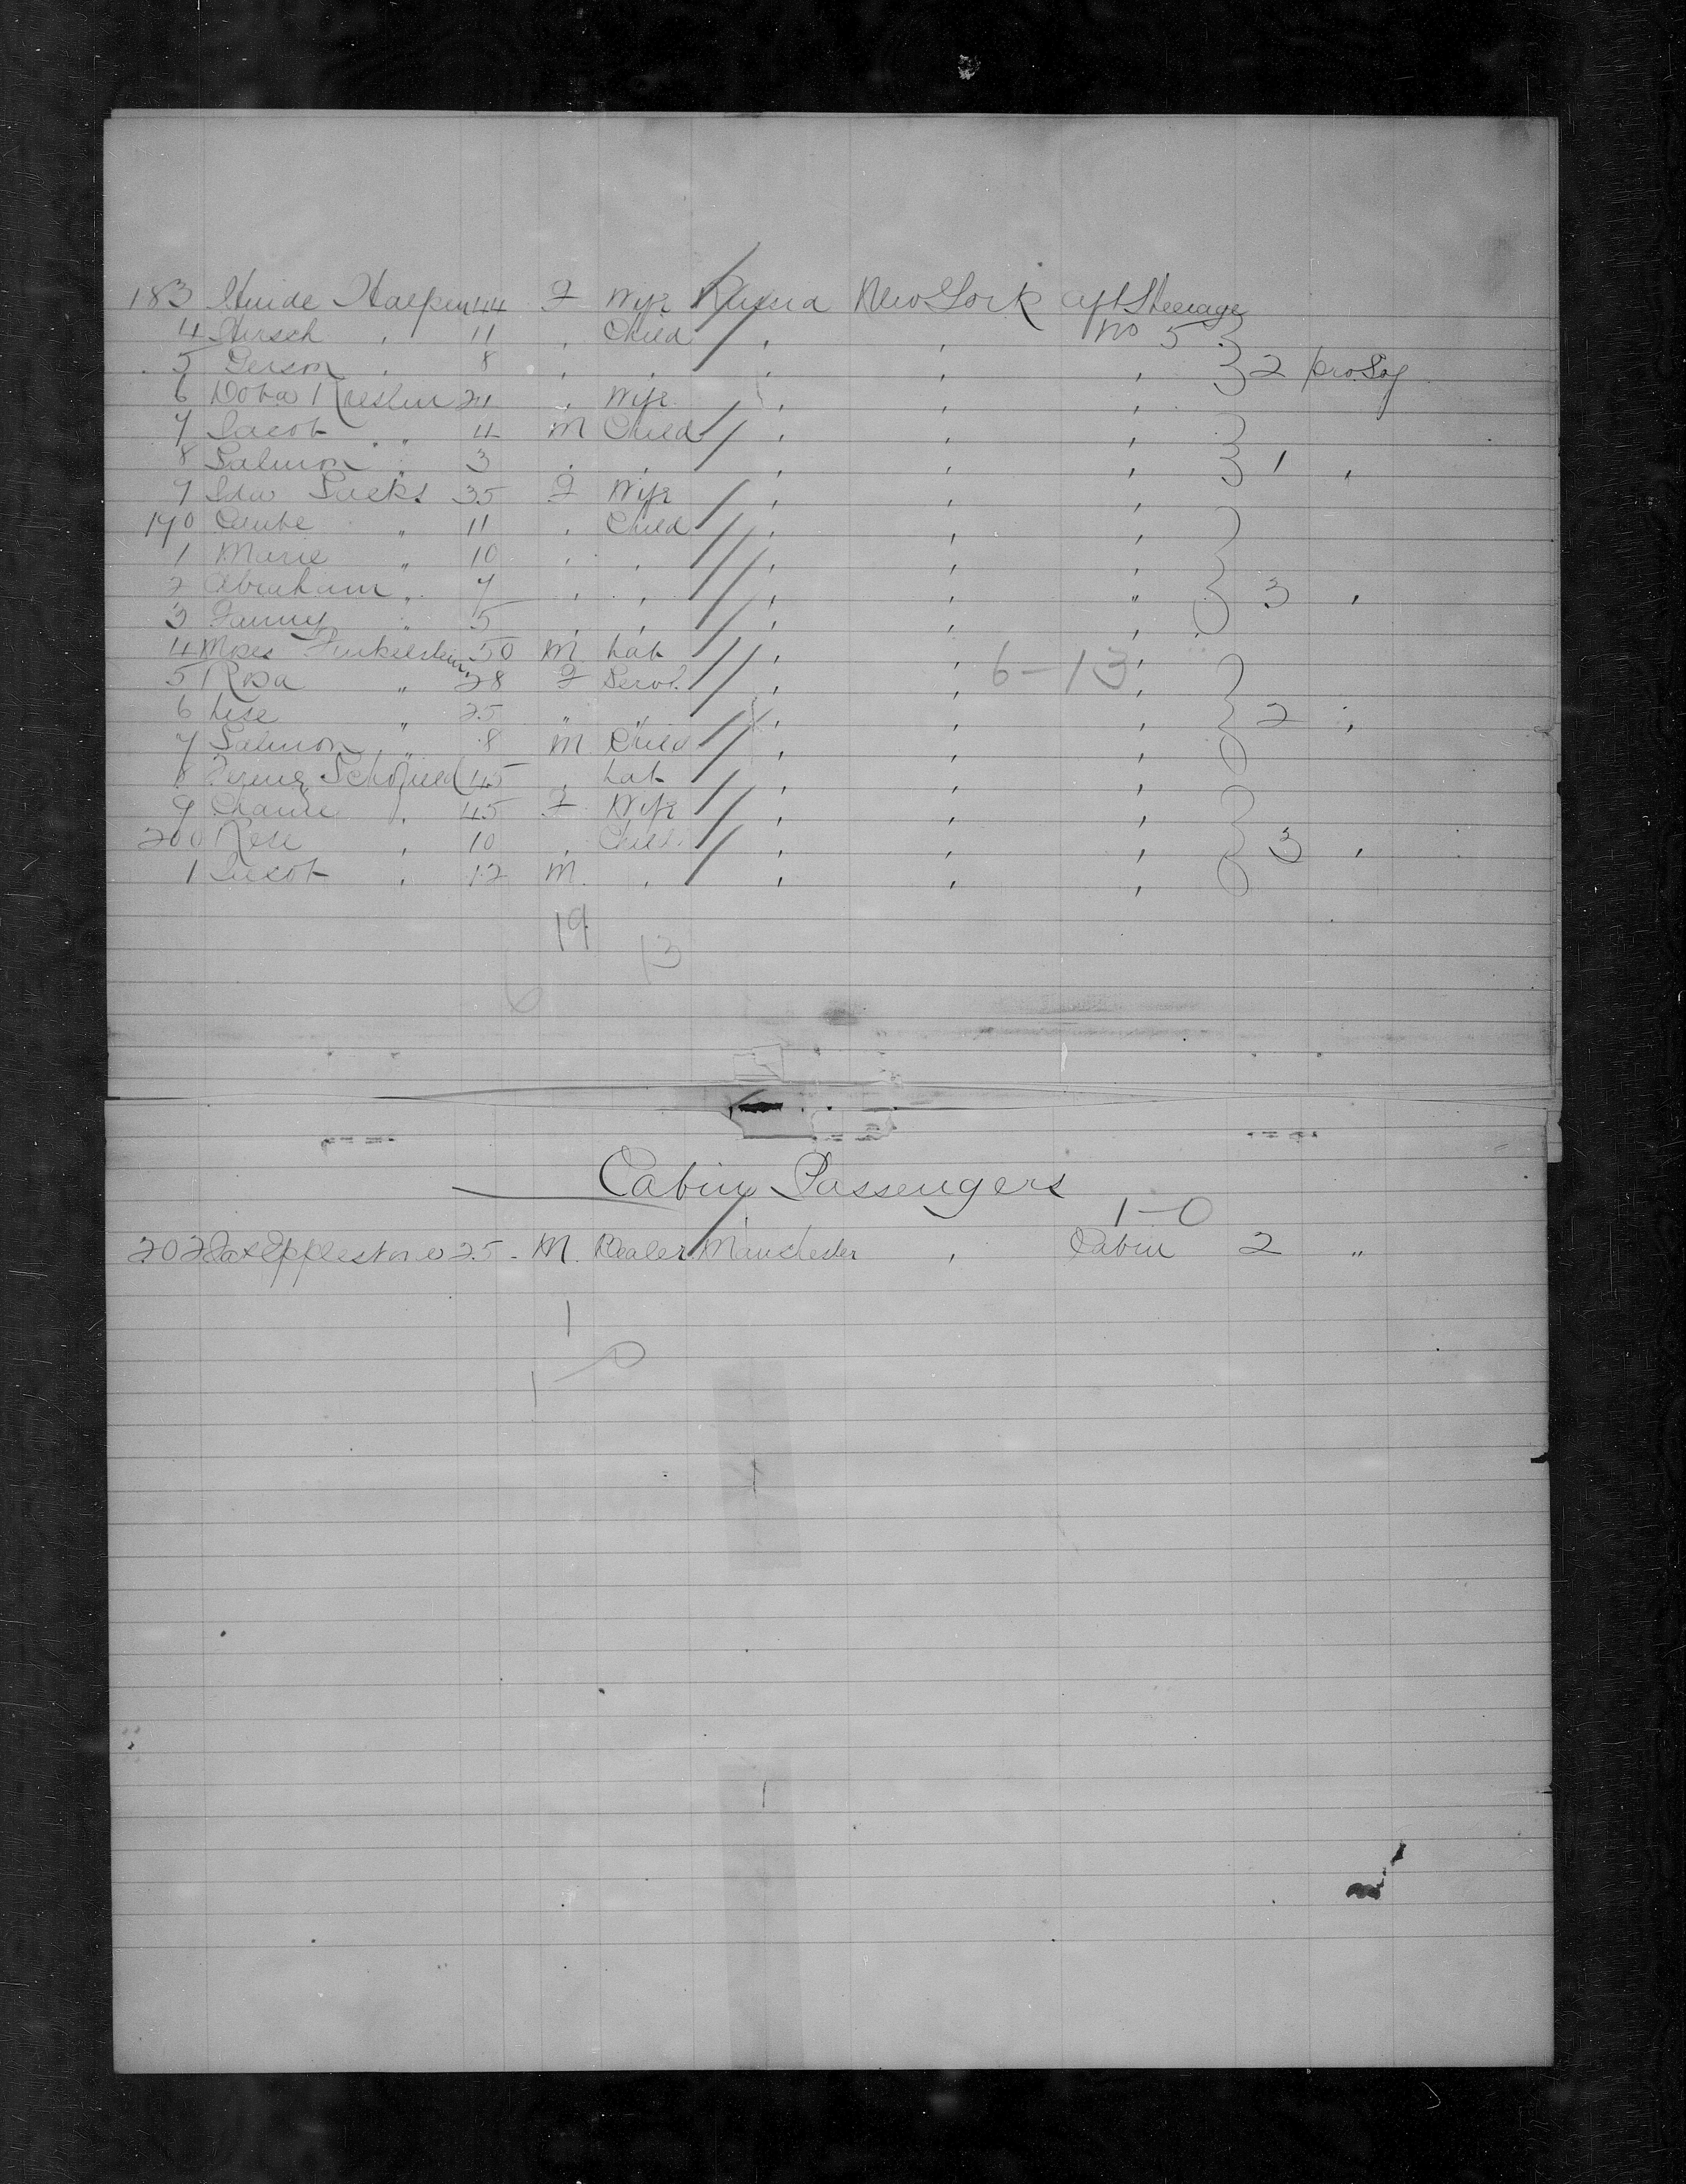 183 Halpern 44 F Wife Russia New York Aft Steerage
4 Hirsch " 11 " Child " " No 5
5 Gerson " 8 " " " " " 2 pro Sog
6 Doba 24 " Wife " " "
7 Jacob " 4 M Child " " "
8 Salmon " 3 " " " " " 1 "
9 Ida 35 F Wife " " "
190 " 11 " Child " " "
1 Marie " 10 " " " " "
2 Abraham " 7 " " " " " 3 "
3 Fanny " 5 " " " " "
4 Moses Finkelstein 50 M Lab " " "
6-13
5 Rosa " 28 F Servt " " "
6 Lise " 25 " " " " " 2 "
7 Salmon " 8 M Child " " "
8 Schofield 45 " Lab " " "
9 " 45 F Wife " " "
200 Rose " 10 " Child " " " 3 "
1 Jacob " 12 M " " " "
19
6 13
Cabin Passengers
1-0
202 Epplestone 25 M. Dealer Manchester " Cabin 2 "
1
1-0